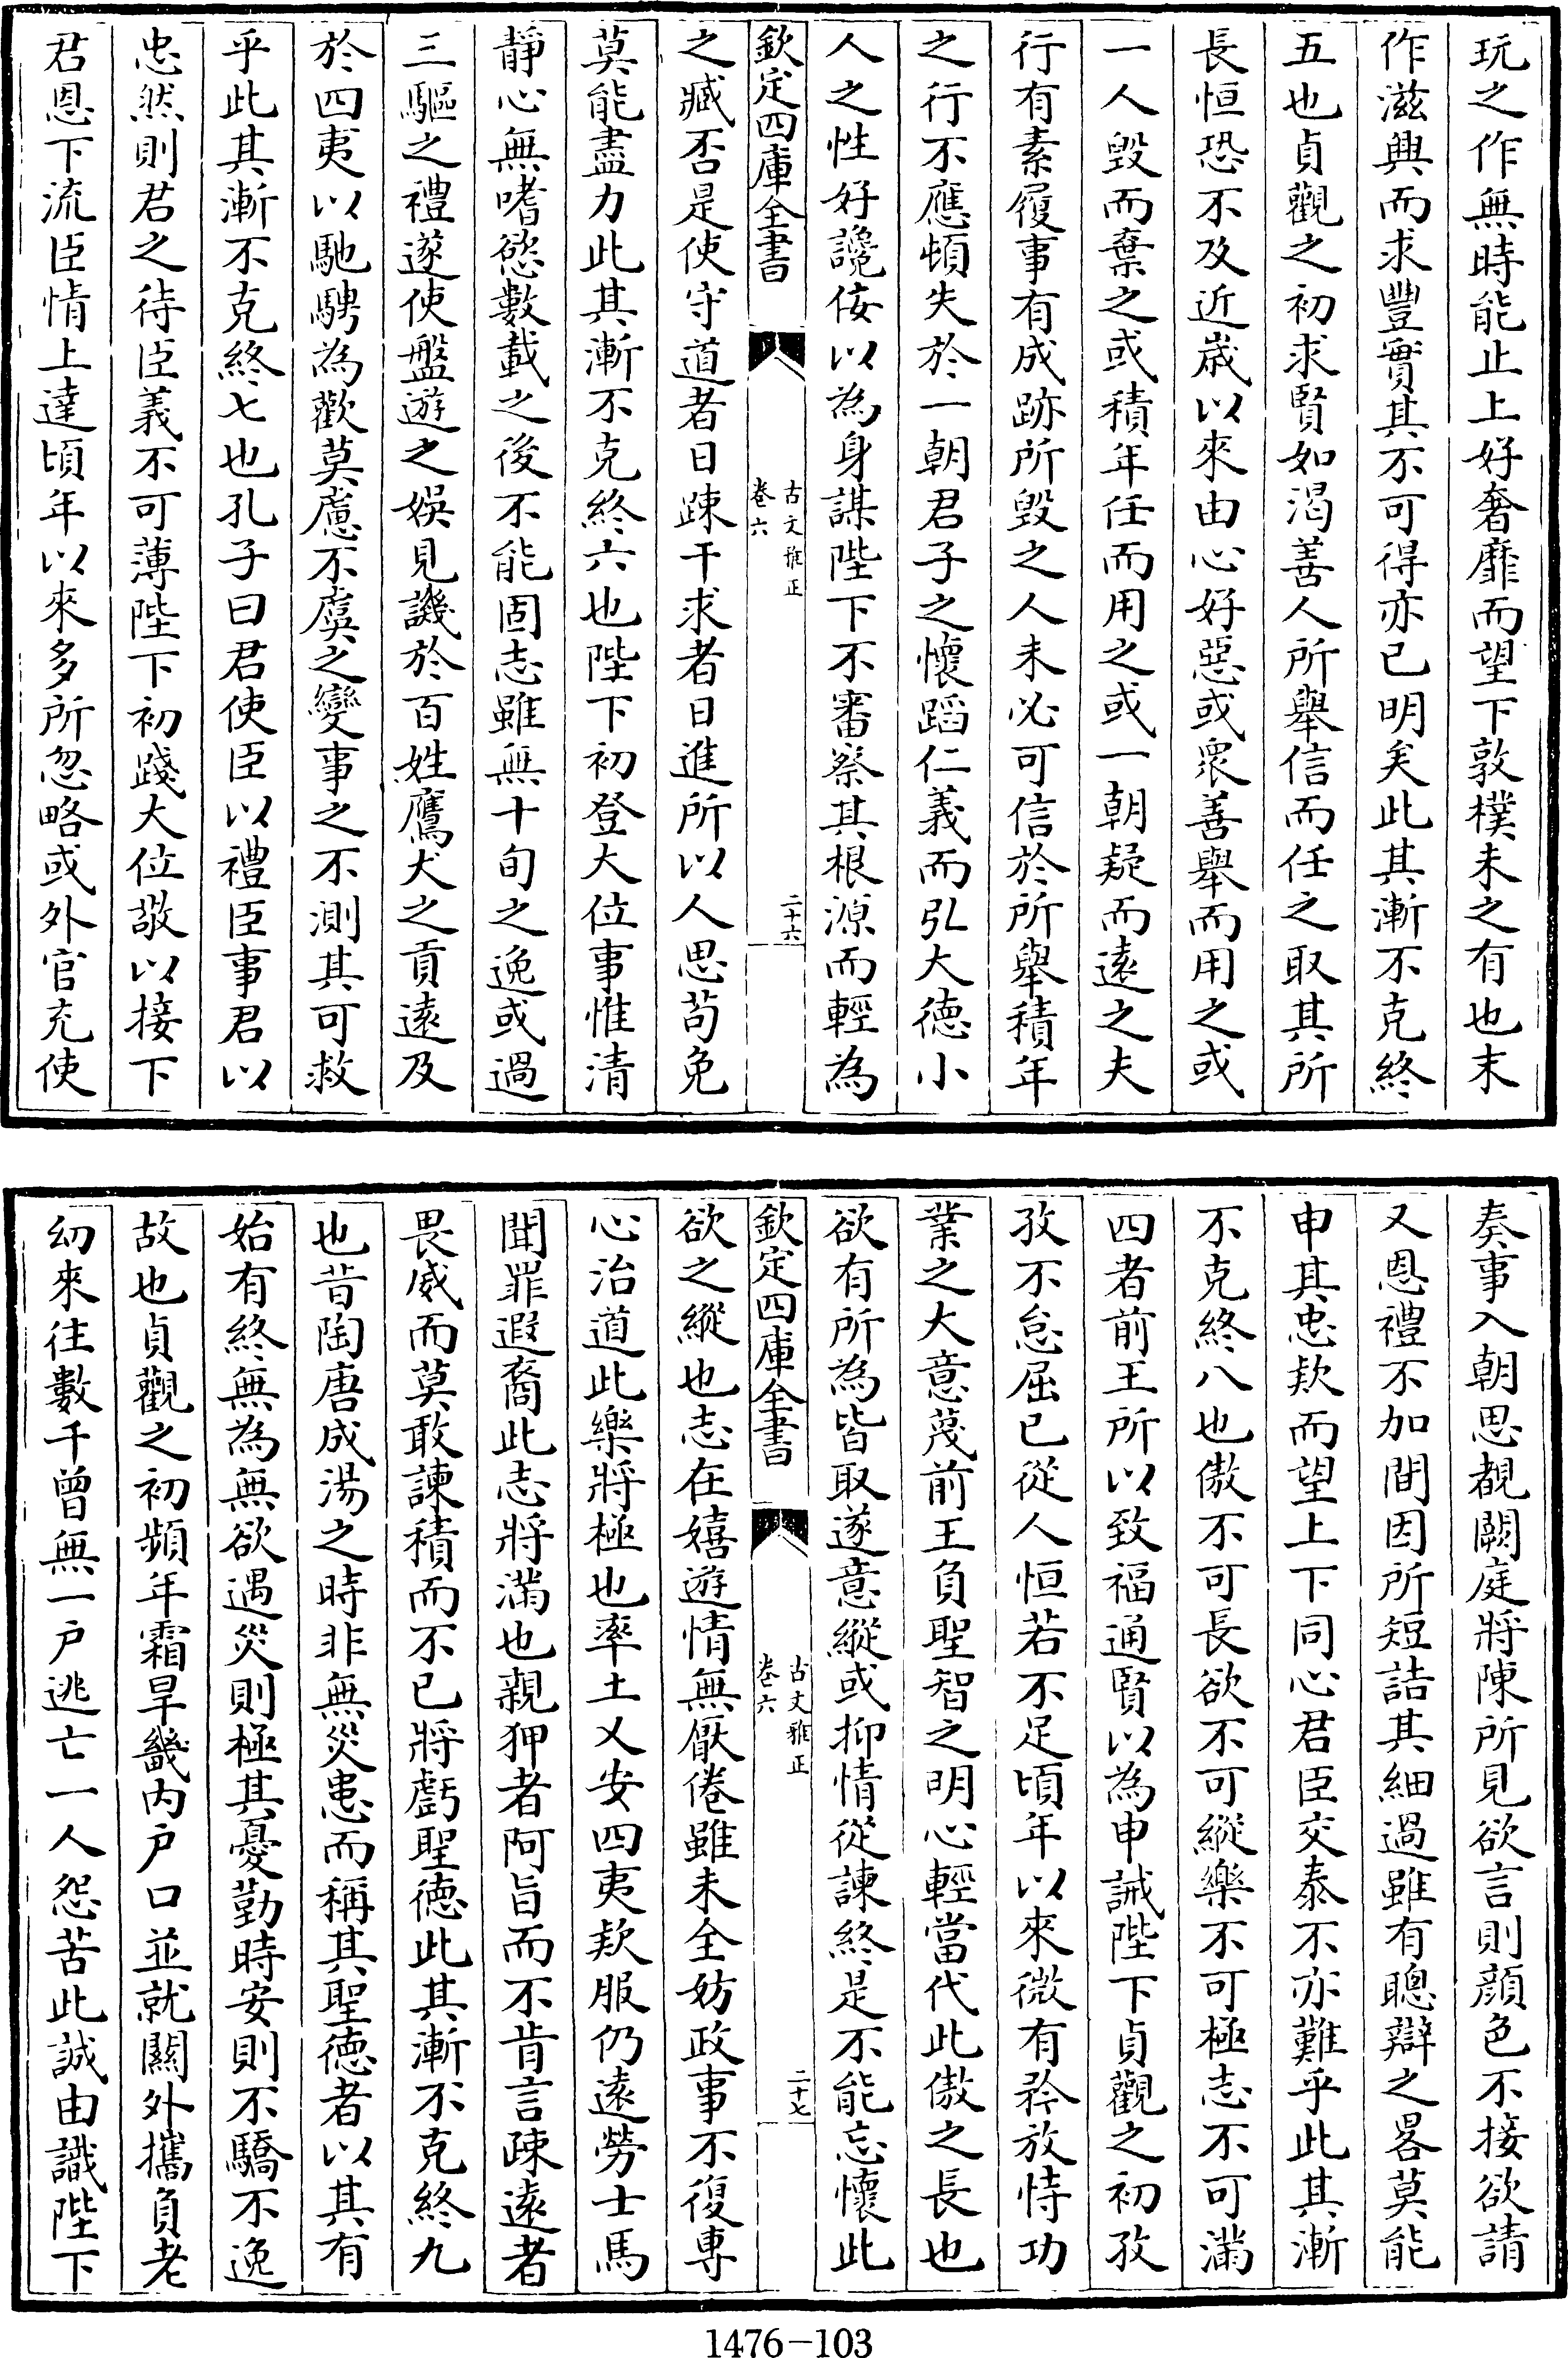 玩之作無時能止上好奢靡而望下敦樸未之有也末
作滋興而求豐實其不可得亦已明矣此其漸不克終
五也貞觀之初求賢如渴善人所舉信而任之取其所
長恒恐不及近歲以來由心好惡或衆善舉而用之或
一人毀而棄之或積年任而用之或一朝疑而遠之夫
行有素履事有成跡所毀之人未必可信於所舉積年
之行不應頓失於一朝君子之懷蹈仁義而弘大德小
人之性好讒佞以為身謀陛下不審察其根源而輕為
欽定四庫全書
古文雅正
卷六
二十六
之臧否是使守道者日疎干求者日進所以人思苟免
莫能盡力此其漸不克終六也陛下初登大位事惟清
靜心無嗜慾數載之後不能固志雖無十旬之逸或過
三驅之禮遂使盤遊之娛見譏於百姓鷹犬之貢遠及
於四夷以馳騁為歡莫慮不虞之變事之不測其可救
乎此其漸不克終七也孔子曰君使臣以禮臣事君以
忠然則君之待臣義不可薄陛下初踐大位敬以接下
君恩下流臣情上達頃年以來多所忽略或外官充使
奏事入朝思覩闕庭將陳所見欲言則顔色不接欲請
又恩禮不加間因所短詰其細過雖有聰辯之畧莫能
申其忠欵而望上下同心君臣交泰不亦難乎此其漸
不克終八也傲不可長欲不可縱樂不可極志不可滿
四者前王所以致福通賢以為申誡陛下貞觀之初孜
孜不怠屈已從人恒若不足頃年以來微有矜放恃功
業之大意蔑前王負聖智之明心輕當代此傲之長也
欲有所為皆取遂意縱或抑情從諫終是不能忘懷此
欽定四庫全書
古文雅正
卷六
二十七
欲之縱也志在嬉遊情無厭倦雖未全妨政事不復專
心治道此樂將極也率土乂安四夷欵服仍遠勞士馬
問罪遐裔此志將滿也親狎者阿旨而不肯言疎遠者
畏威而莫敢諫積而不已將虧聖德此其漸不克終九
也昔陶唐成湯之時非無災患而稱其聖德者以其有
始有終無為無欲遇災則極其憂勤時安則不驕不逸
故也貞觀之初頻年霜旱畿內戶口並就關外攜負老
幼來往數千曾無一戶逃亡一人怨苦此誠由識陛下
1476-103